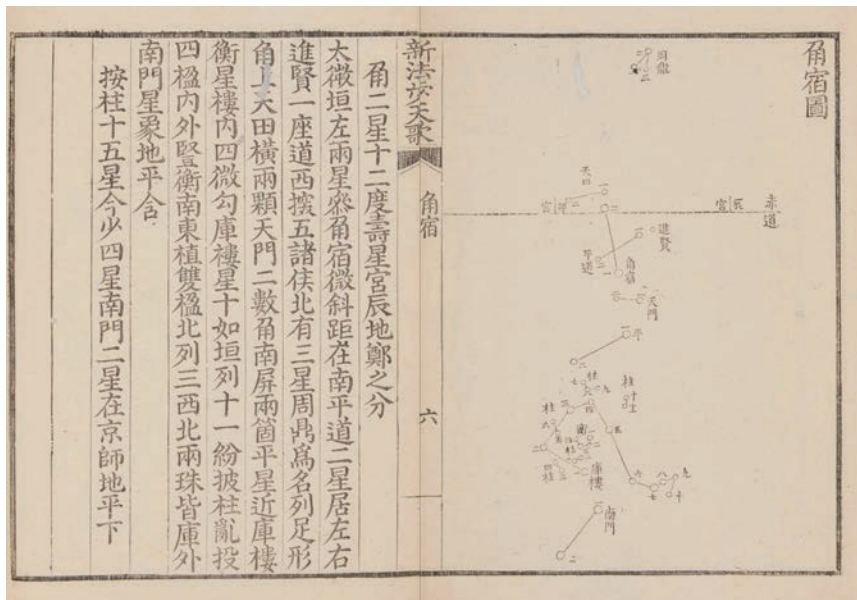 角宿圖
周鼎
三
天田
一
二
二
宮卯
宮辰
赤道
進賢
一
平道
二
一
角宿
天門
一
平
二
柱
七
九
三
四
柱
十
十一
柱
六
五
二
衡
柱
庫樓
六
七
八
九
十
一
南門
二
新法步天歌
角宿
六
角二星十二度壽星宮辰地鄭之分
太微垣左兩星叅角宿微斜距在南平道二星居左右
進賢一座道西擯五諸侯北有三星周鼎爲名列足形
角上天田橫兩顆天門二數角南屏兩箇平星近庫樓
衡星樓內四微勾庫樓星十如垣列十一紛披柱亂投
四楹內外豎衡南東植雙楹北列三西北兩珠皆庫外
南門星象地平含
按柱十五星今少四星南門二星在京師地平下